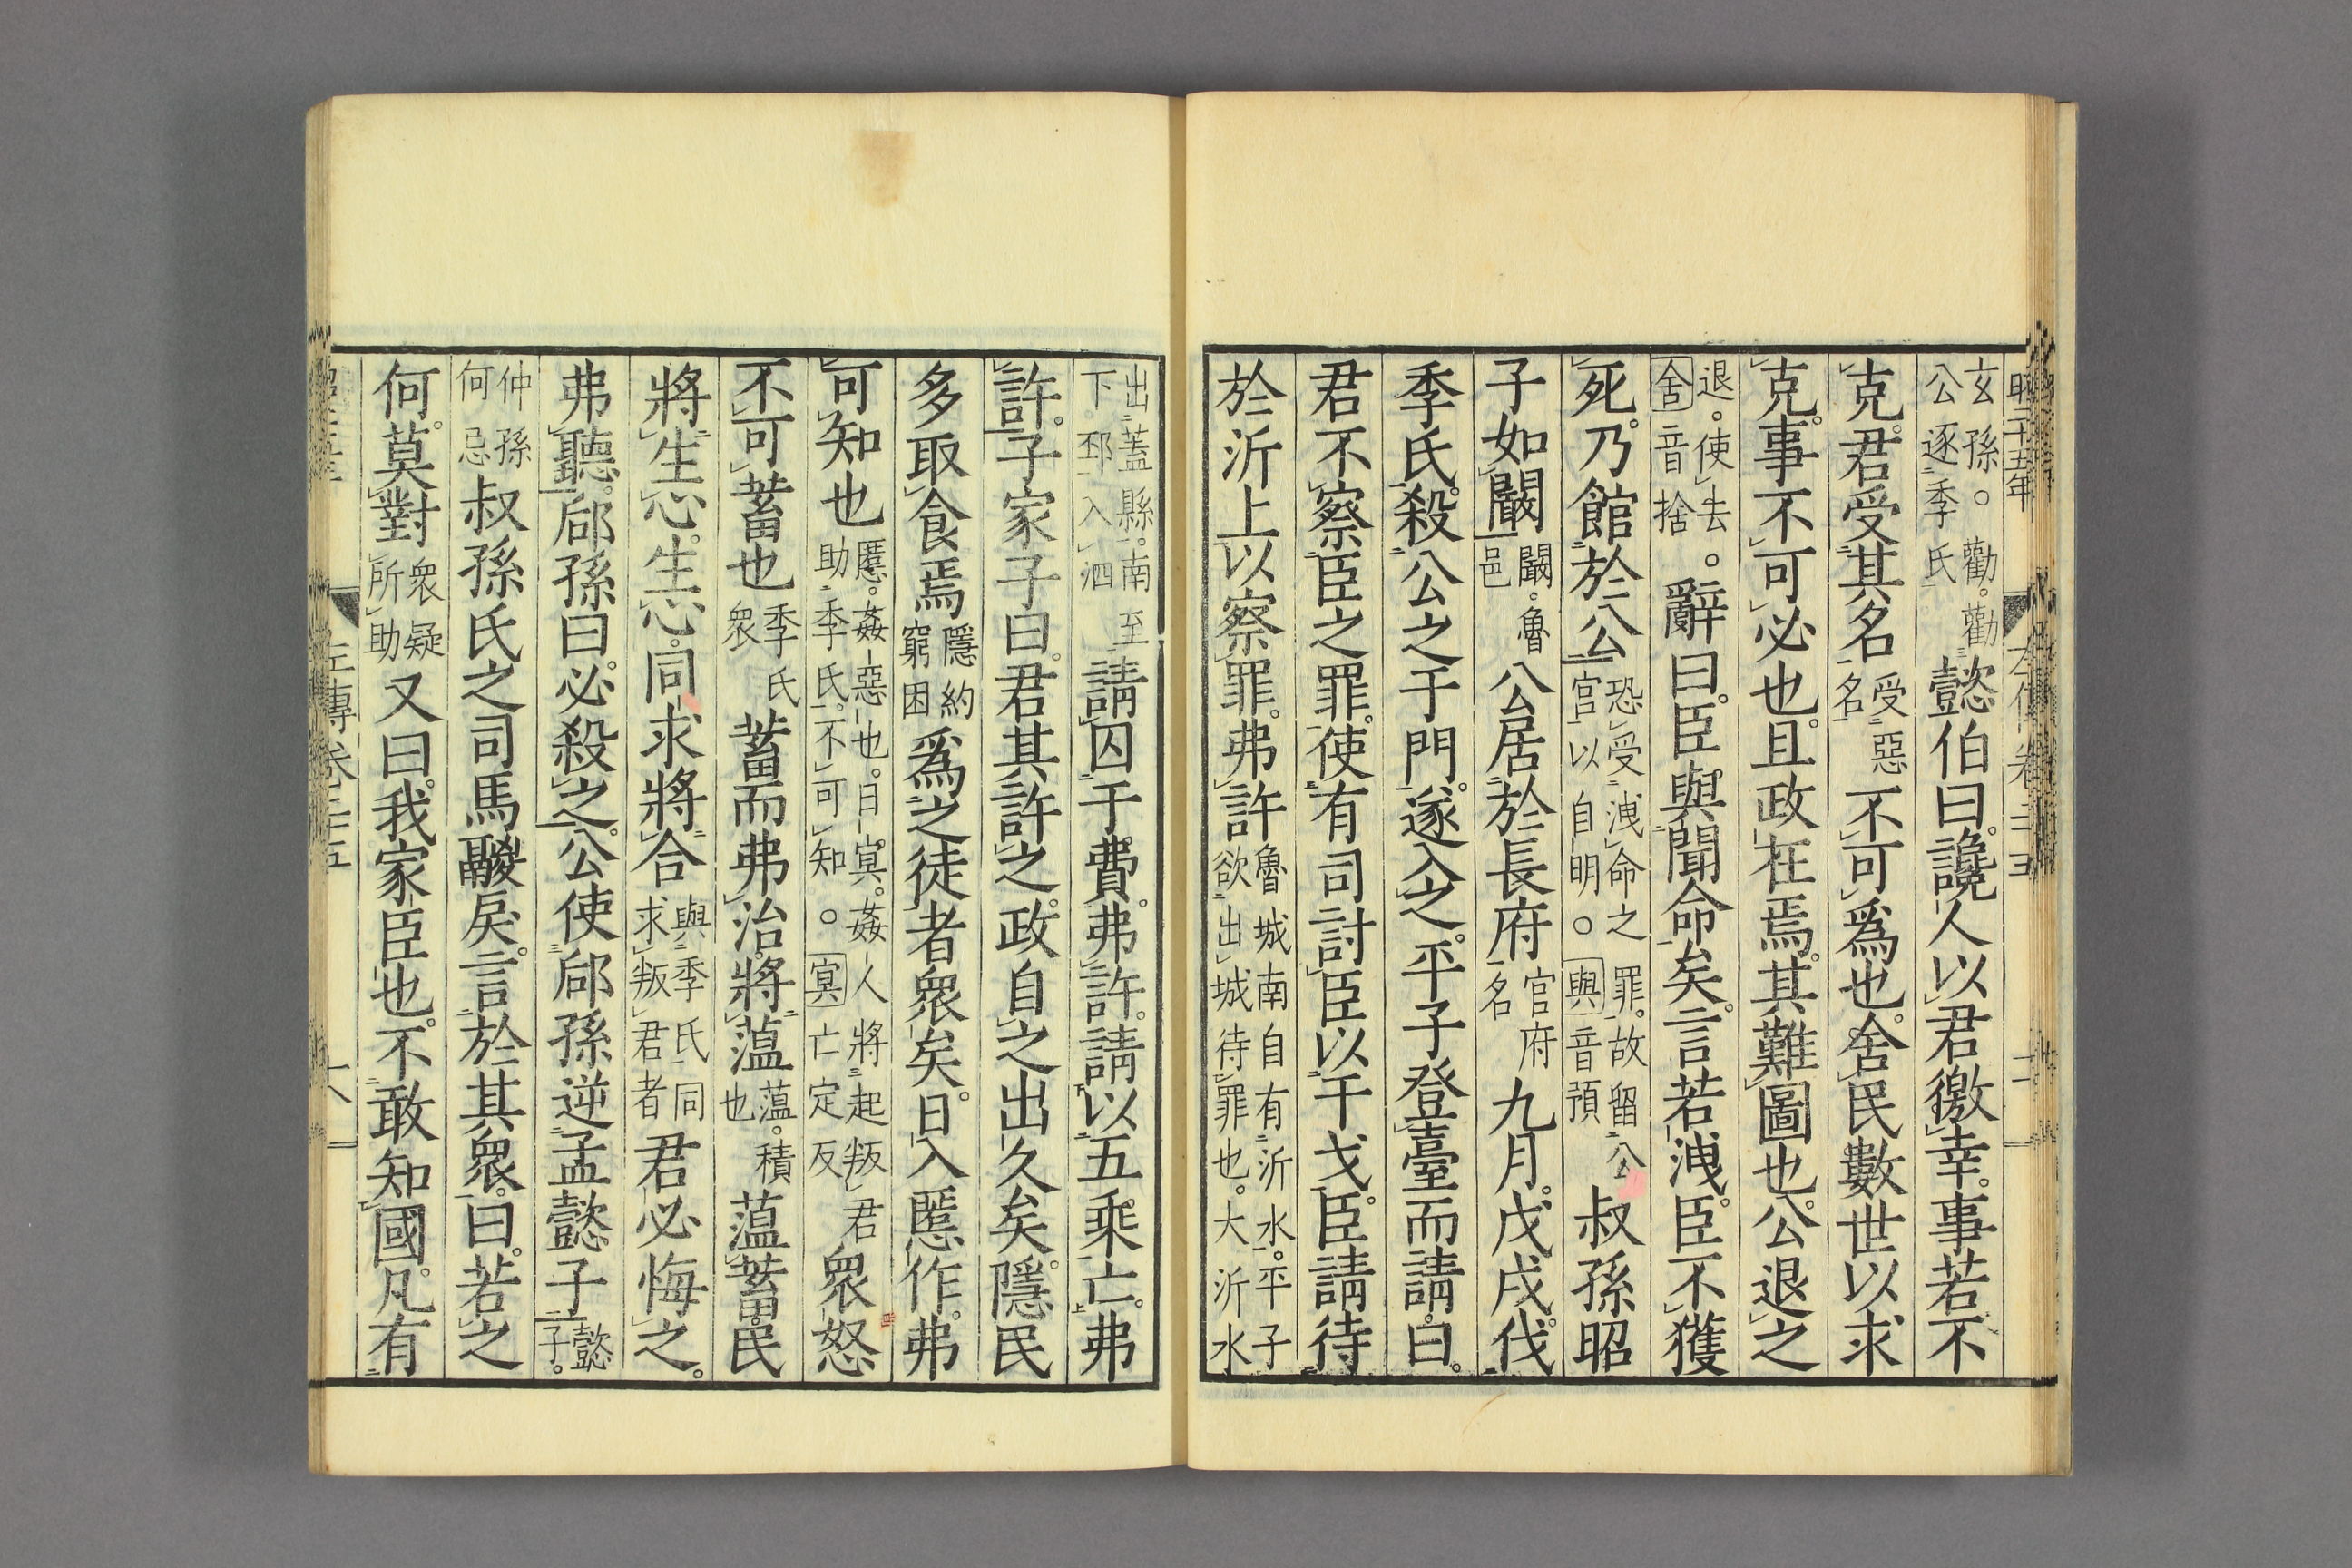 昭二十五年
玄孫。勸。勸公逐季氏懿伯曰。讒人以君徼幸。事若不
克。君受其名受惡名不可爲也。舍民數世以求
克。事不可必也。且政在焉。其難圖也。公退之
退。使去。舍音捨辭曰。臣與聞命矣。言若洩。臣不獲
死。乃館於公恐受洩命之罪。故留公宮以自明。與音預叔孫昭
子如闞闞。魯邑公居於長府官府名九月。戊戌。伐
季氏。殺公之于門。遂入之。平子登臺而請。曰。
君不察臣之罪。使有司討臣以干戈。臣請待
於沂上以察罪。弗許魯城南自有沂水。平子欲出城待罪也。大沂水
出蓋縣。南至下邳入泗請囚于費。弗許。請以五乘亡。弗
許。子家子曰。君其許之。政自之出久矣。隱民
多取食焉隱約窮困爲之徒者衆矣。日入慝作。弗
可知也慝。姦惡也。日冥。姦人將起叛君助季氏。不可知。冥亡定反衆怒
不可蓄也季氏衆蓄而弗治。將薀薀。積也薀蓄。民
將生心。生心。同求將合與季氏同求叛君者君必悔之。
弗聽。郈孫曰。必殺之。公使郈孫逆孟懿子懿子。
仲孫何忌叔孫氏之司馬鬷戾。言於其衆。曰。若之
何。莫對衆疑所助又曰。我家臣也。不敢知國。凡有